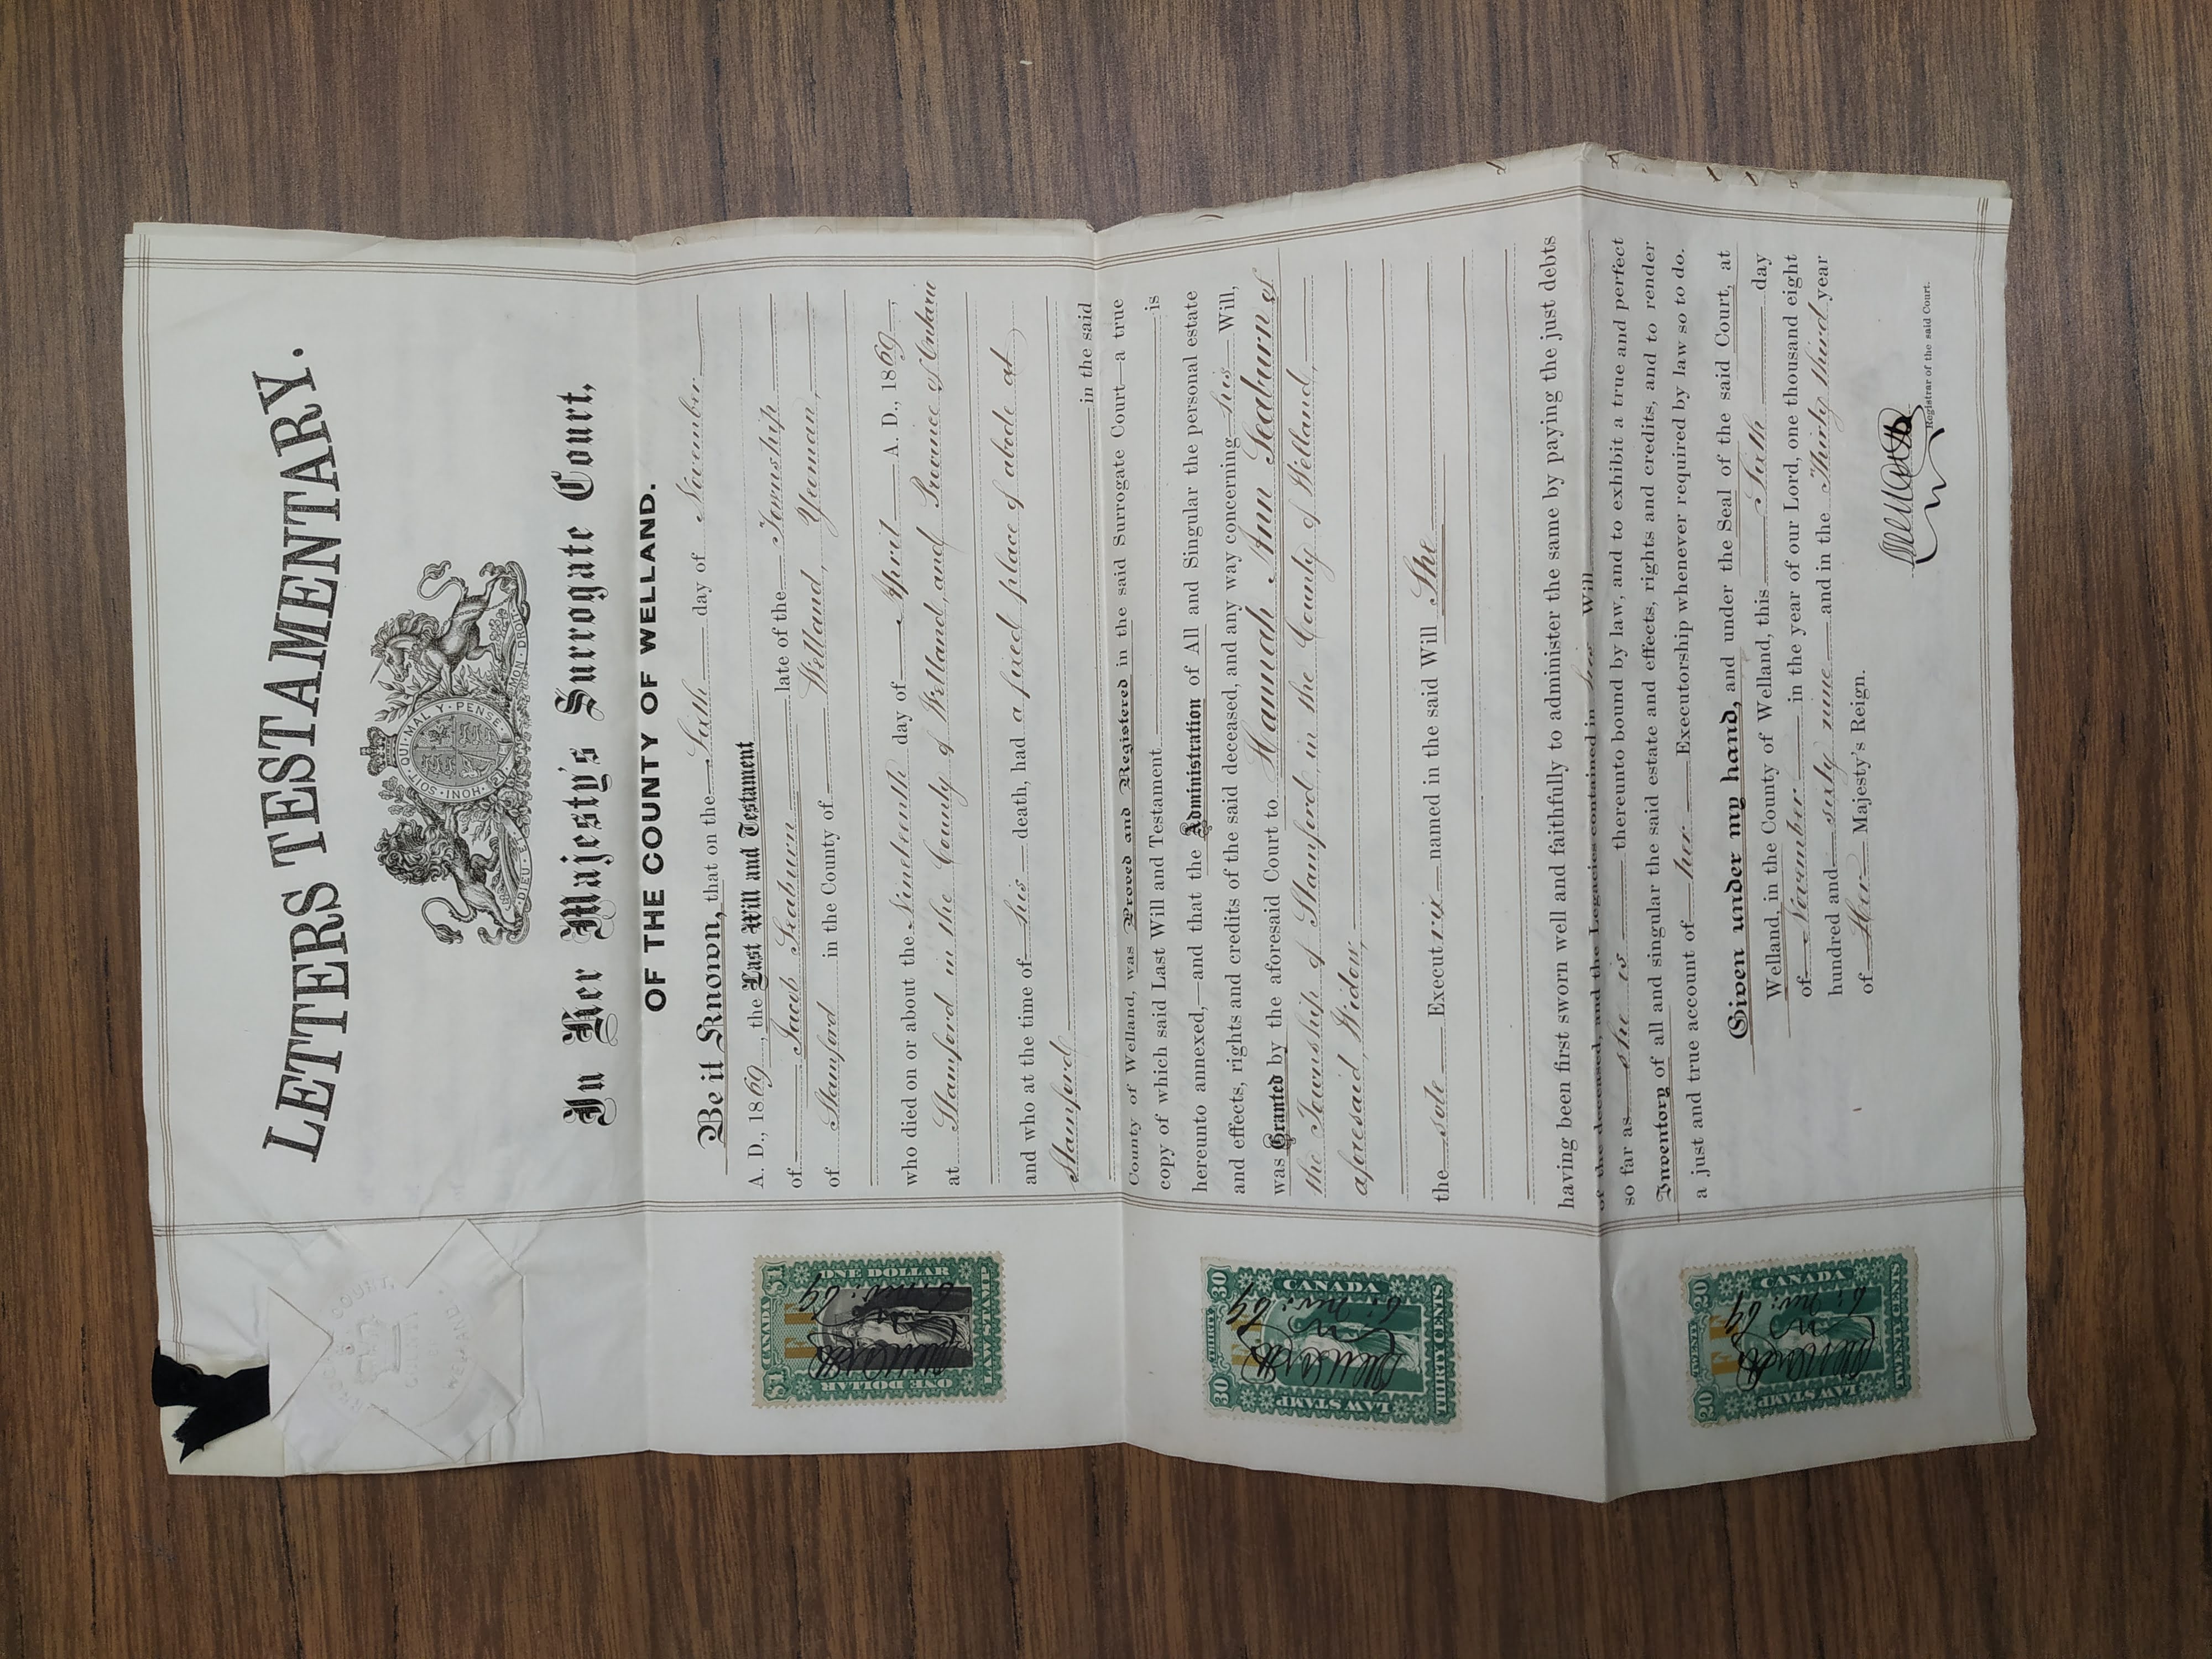 LETTERS TESTAMENTARY.
HONI · SOIT · QUI · MAL · Y · PENSE
DIEU · ET · MON · DROIT
In Her Majesty's Surrogate Court,
OF THE COUNTY OF WELLAND.
Be it Known, that on the Sixth day of November
A. D., 1869, the Last Will and Testament
of Jacob Seaburn late of the Township
of Stamford in the County of Welland, Yeoman,
who died on or about the Nineteenth day of April A. D., 1869,
at Stamford in the County of Welland, and Province of Ontario
and who at the time of his death, had a fixed place of abode at
Stamford in the said
County of Welland, was Proved and Registered in the said Surrogate Court—a true
copy of which said Last Will and Testament is
hereunto annexed,—and that the Administration of All and Singular the personal estate
and effects, rights and credits of the said deceased, and any way concerning his Will,
was Granted by the aforesaid Court to Hannah Ann Seaburn of
the Township of Stamford, in the County of Welland,
aforesaid, Widow,
the sole Executrix named in the said Will She
having been first sworn well and faithfully to administer the same by paying the just debts
of the deceased, and the Legacies contained in his Will
so far as she is thereunto bound by law, and to exhibit a true and perfect
Inventory of all and singular the said estate and effects, rights and credits, and to render
a just and true account of her Executorship whenever required by law so to do.
Given under my hand, and under the Seal of the said Court, at
Welland, in the County of Welland, this Sixth day
of November in the year of our Lord, one thousand eight
hundred and sixty nine and in the Thirty third year
of Her Majesty's Reign.
Registrar of the said Court.
SURROGATE COURT,
COUNTY
WELLAND
$1 CANADA $1
F.F.
ONE DOLLAR
ONE DOLLAR
LAW STAMP
6: Nov: 69
30 THIRTY 30
F.F.
LAW STAMP
CANADA
THIRTY CENTS
6: Nov: 69
20 TWENTY 20
F.F.
LAW STAMP
CANADA
TWENTY CENTS
6: Nov: 69